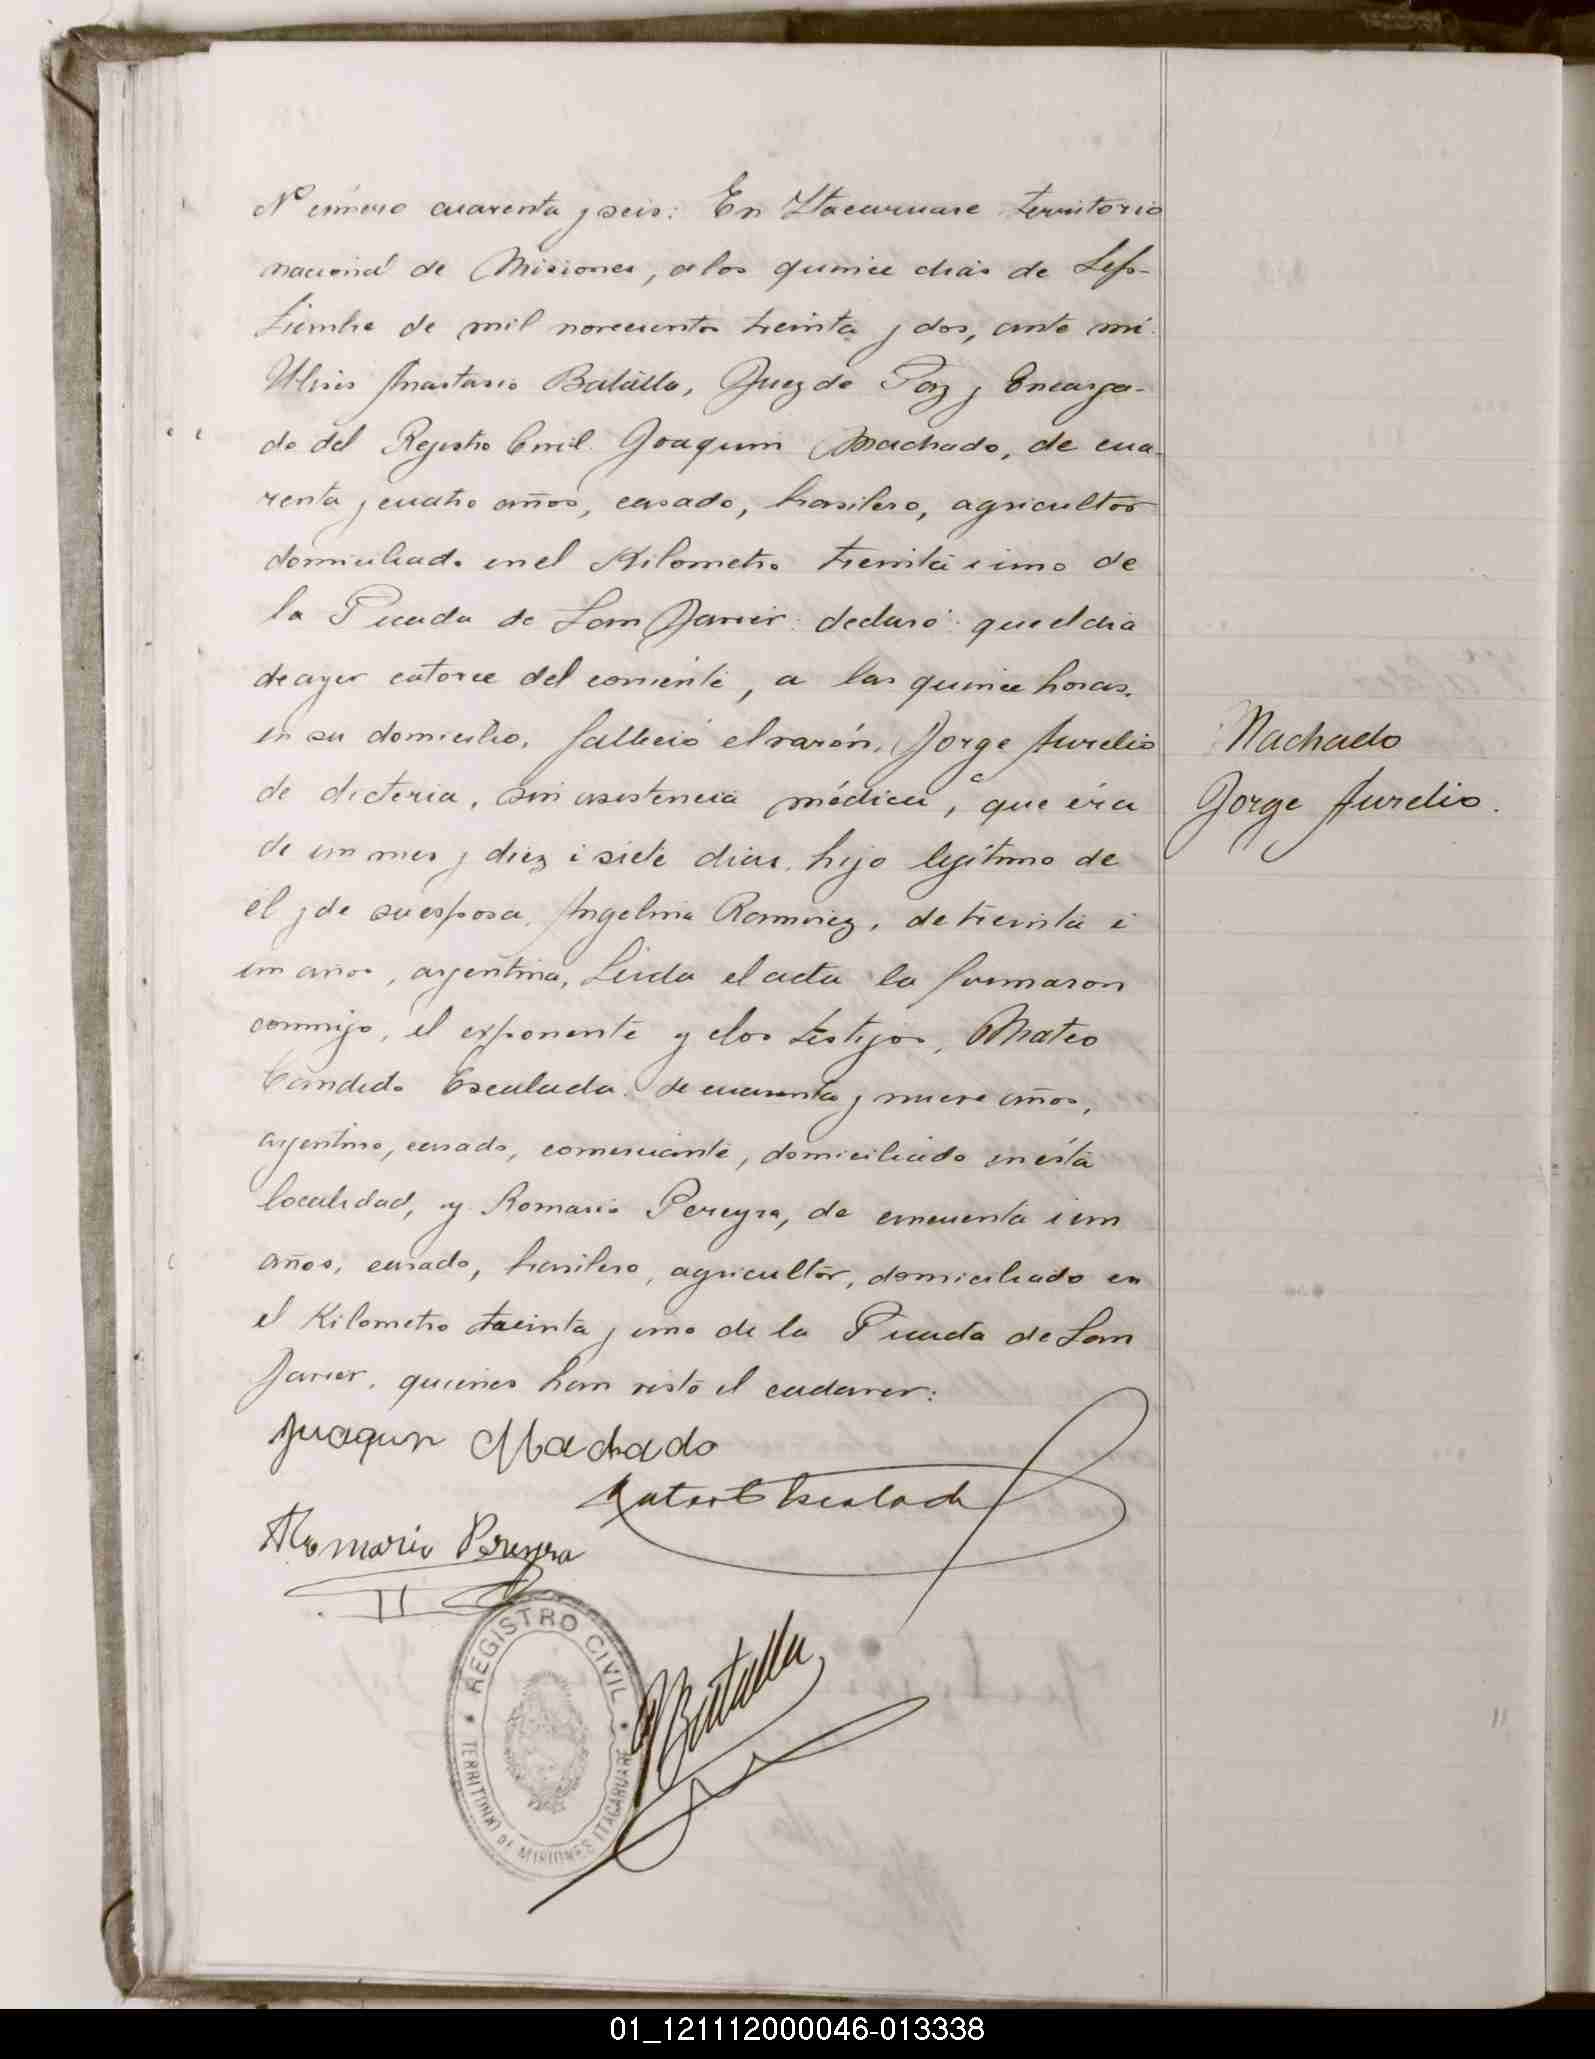 Número cuarenta y seis: En Itacaruare territorio
nacional de Misiones, a los quince dias de Sep-
tiembre de mil novecientos treinta y dos, ante mi
Ulises Anastacio Batalla, Juez de Paz y Encarga-
do del Registro Civil. Joaquin Machado, de cua-
renta y cuatro años, casado, brasilero, agricultor
domiciliado en el Kilometro treinta i uno de
la Picada de San Javier: declaró: que el dia
de ayer catorce del corriente, a las quince horas,
en su domicilio, falleció el varón, Jorge Aurelio
de dicteria, sin asistencia médica, que éra
de un mes y diez i siete dias, hijo legitimo de
él y de su esposa, Angelina Ramirez, de treinta i
un años, argentina, Leida el acta la firmaron
conmigo, el exponente y los testigos, Mateo
Candido Escalada de cuarenta y nueve años,
argentino, casado, comerciante, domiciliado en ésta
localidad, y Romario Pereyra, de cincuenta i un
años, casado, brasilero, agricultor, domiciliado en
el Kilometro treinta y uno de la Picada de San
Javier, quienes han visto el cadaver:
Machado
Jorge Aurelio.
Juaqun Machado
Mateo C Escalada
Romario Pereyra
Batalla
REGISTRO CIVIL
TERRITORIO DE MISIONES ITACARUARE
01_121112000046-013338